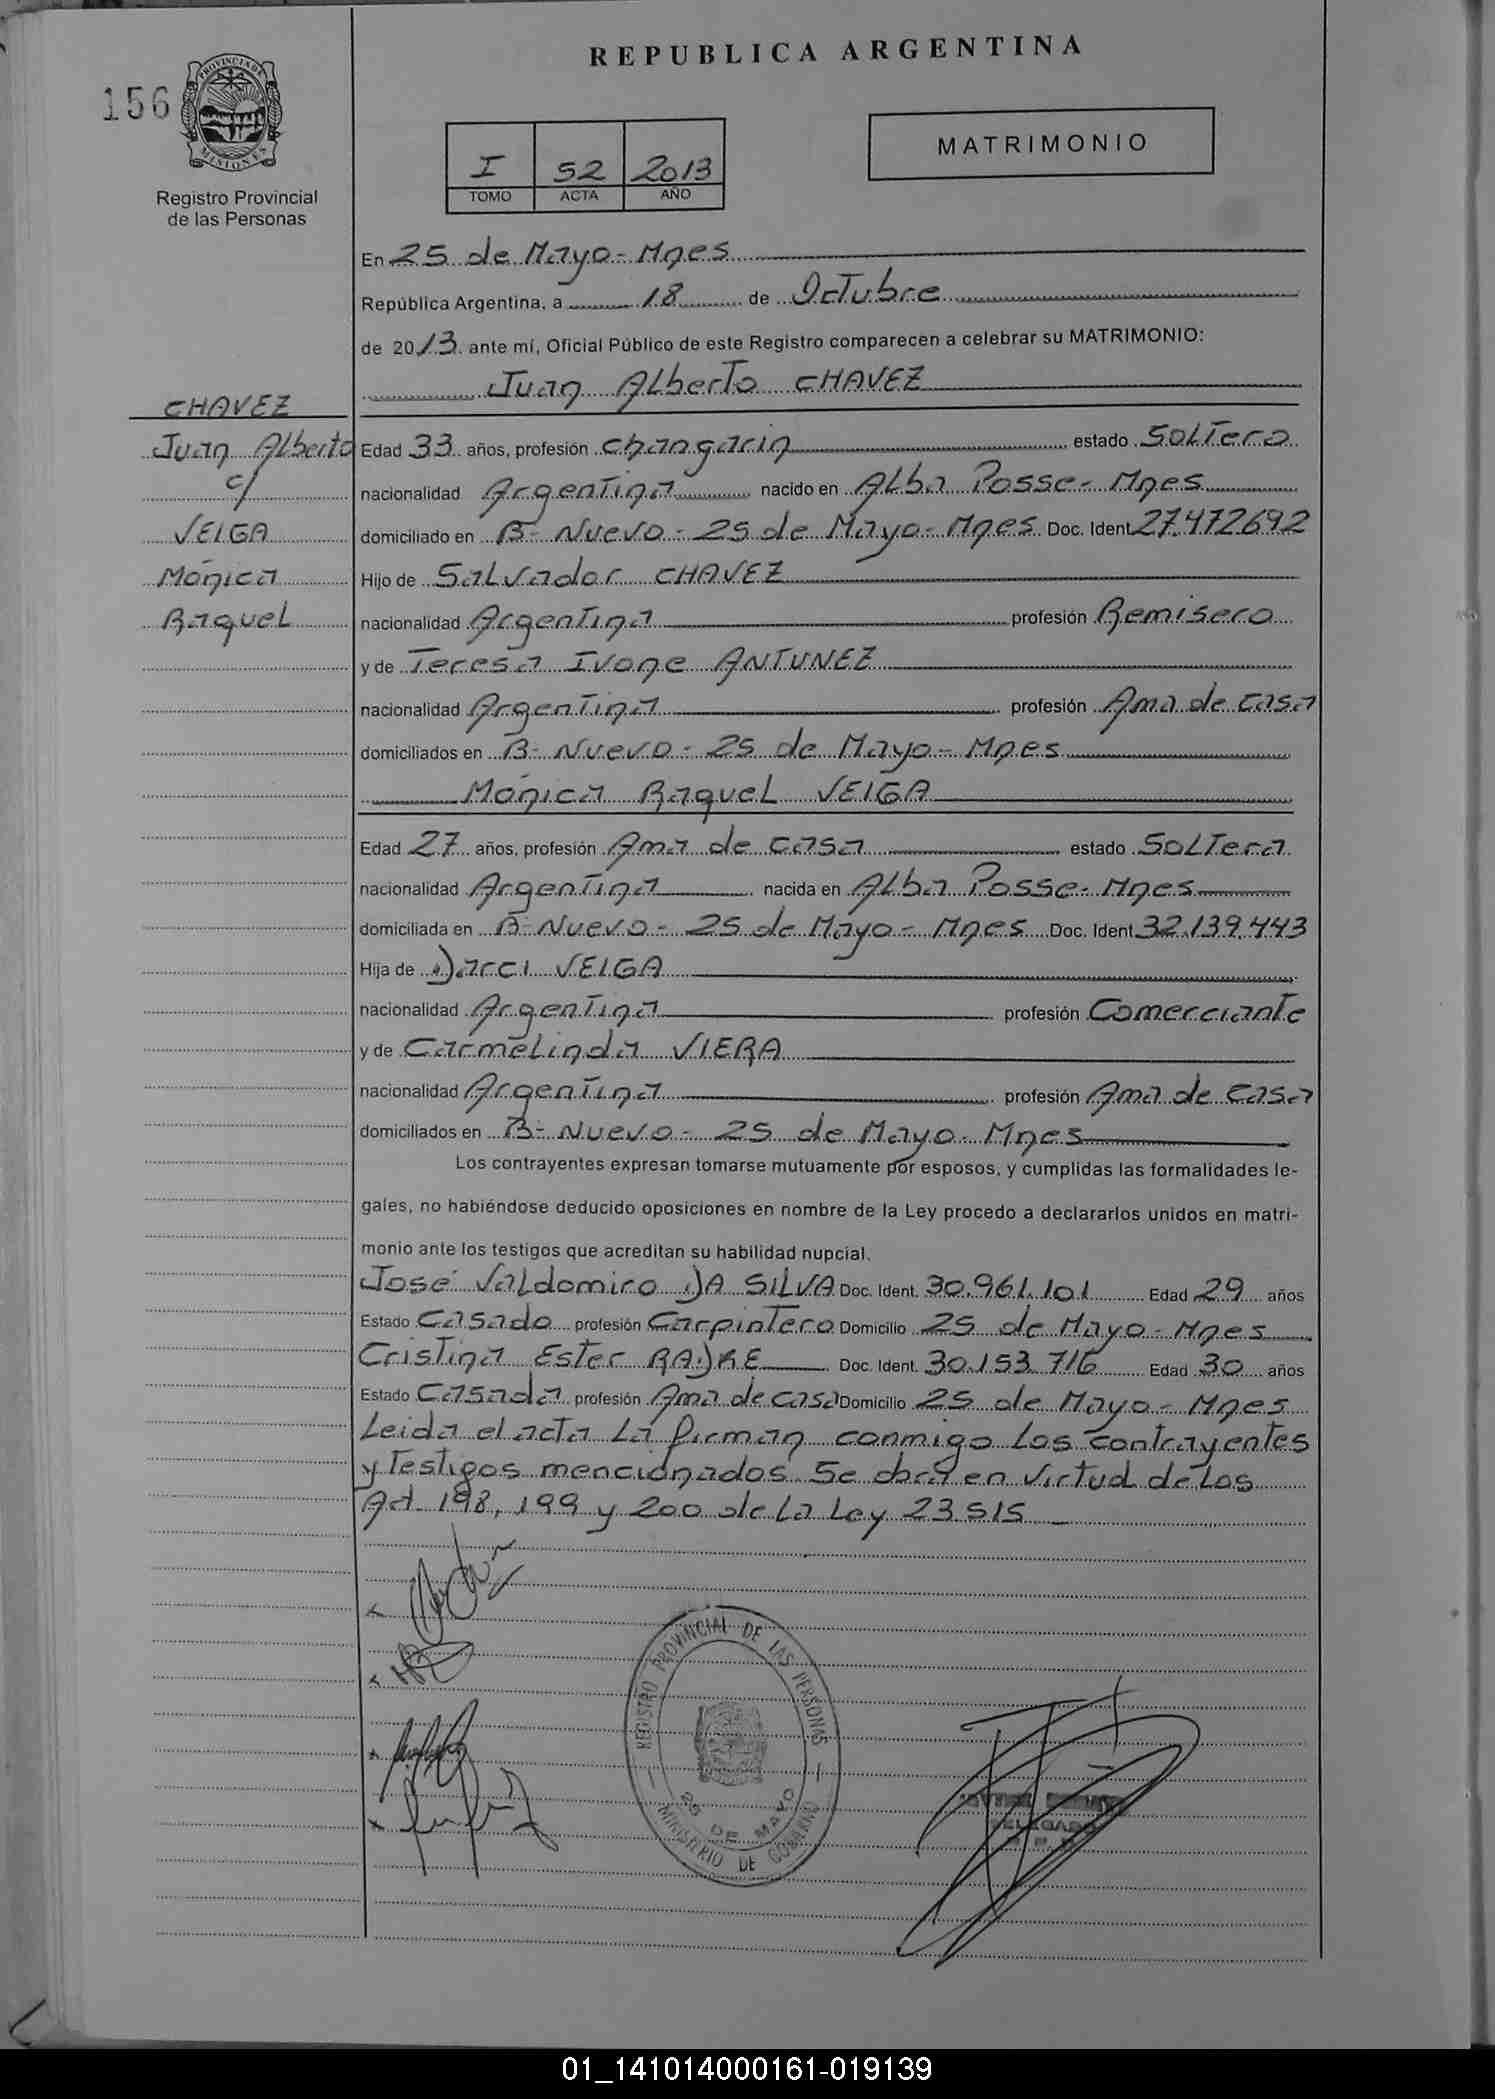 REPUBLICA ARGENTINA
156
PROVINCIA DE
MISIONES
Registro Provincial
de las Personas
I 52 2013
TOMO ACTA AÑO
MATRIMONIO
En 25 de Mayo - Mnes
República Argentina, a 18 de Octubre
de 2013 ante mí, Oficial Público de este Registro comparecen a celebrar su MATRIMONIO:
Juan Alberto CHAVEZ
CHAVEZ
Juan Alberto
c/
VEIGA
Mónica
Raquel
Edad 33 años, profesión changarin estado Soltero
nacionalidad Argentina nacido en Alba Posse - Mnes
domiciliado en B- Nuevo - 25 de Mayo - Mnes Doc. Ident. 27.472692
Hijo de Salvador CHAVEZ
nacionalidad Argentina profesión Remisero
y de Teresa Ivone ANTUNEZ
nacionalidad Argentina profesión Ama de casa
domiciliados en B- Nuevo - 25 de Mayo - Mnes
Mónica Raquel VEIGA
Edad 27 años, profesión Ama de casa estado Soltera
nacionalidad Argentina nacida en Alba Posse - Mnes
domiciliada en B- Nuevo - 25 de Mayo - Mnes Doc. Ident. 32.139.443
Hija de Darci VEIGA
nacionalidad Argentina profesión Comerciante
y de Carmelinda VIERA
nacionalidad Argentina profesión Ama de casa
domiciliados en B- Nuevo - 25 de Mayo - Mnes
Los contrayentes expresan tomarse mutuamente por esposos, y cumplidas las formalidades le-
gales, no habiéndose deducido oposiciones en nombre de la Ley procedo a declararlos unidos en matri-
monio ante los testigos que acreditan su habilidad nupcial.
José Valdomiro DA SILVA Doc. Ident. 30.961.101 Edad 29 años
Estado Casado profesión Carpintero Domicilio 25 de Mayo - Mnes
Cristina Ester RADKE Doc. Ident. 30.153.716 Edad 30 años
Estado Casada profesión Ama de casa Domicilio 25 de Mayo - Mnes
Leida el acta la firman conmigo los contrayentes
y Testigos mencionados Se obra en virtud de los
Art. 198, 199 y 200 de la Ley 23.515
REGISTRO PROVINCIAL DE LAS PERSONAS
25 DE MAYO
MINISTERIO DE GOBIERNO
DELEGADO
01_141014000161-019139